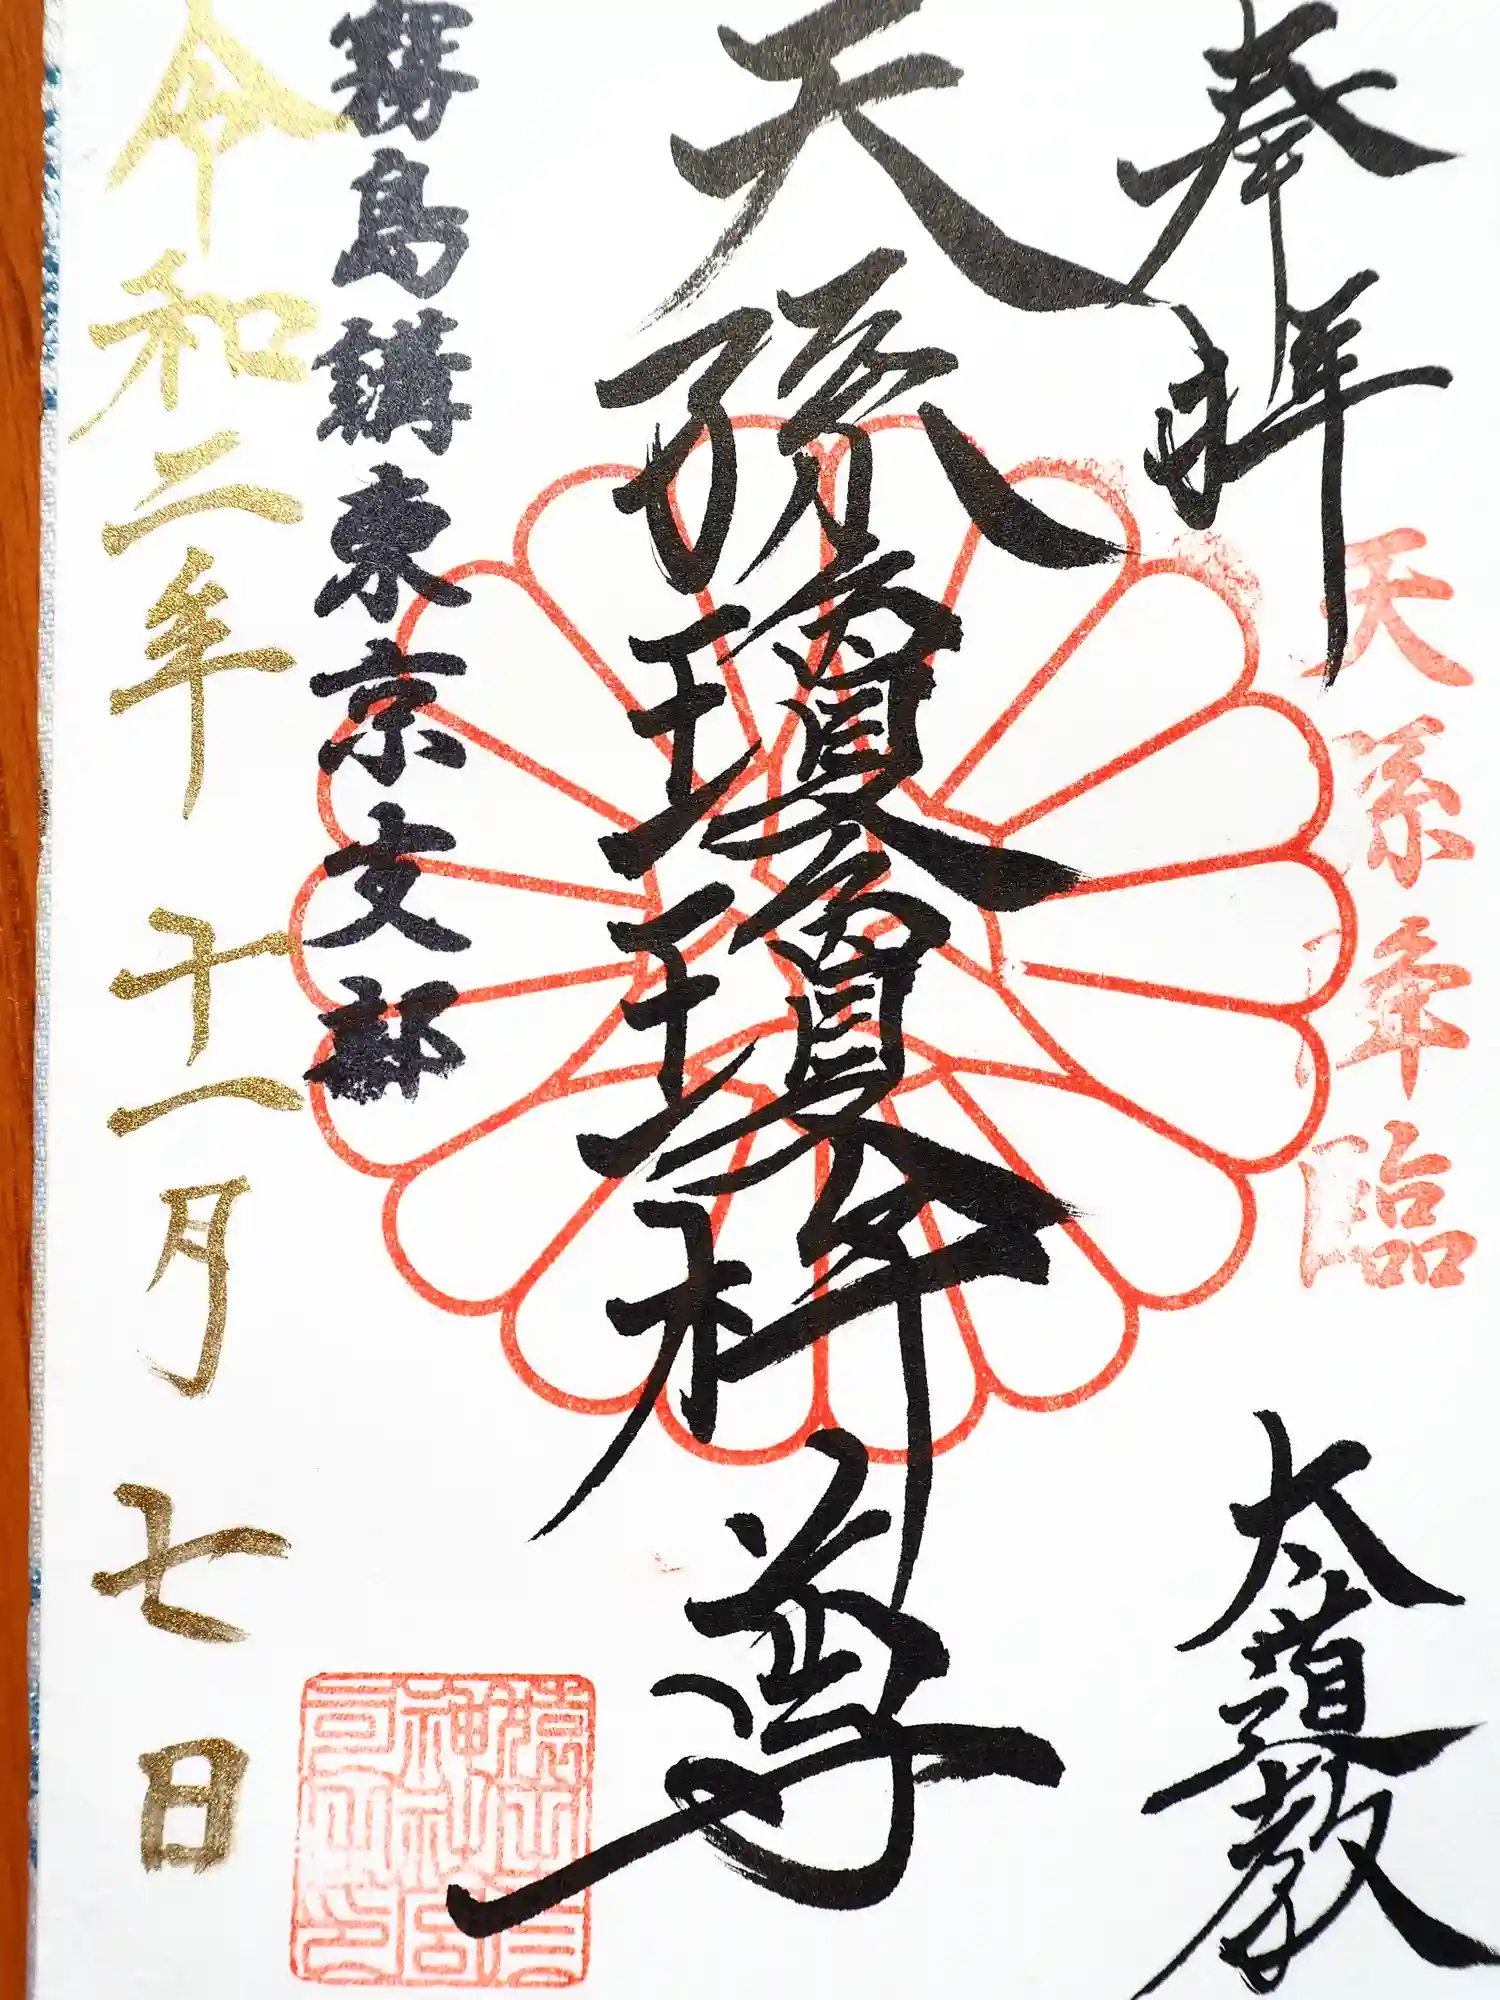 奉拝
天孫降臨
大道教
天孫瓊瓊杵尊
霧島講東京支部
令和二年十一月七日